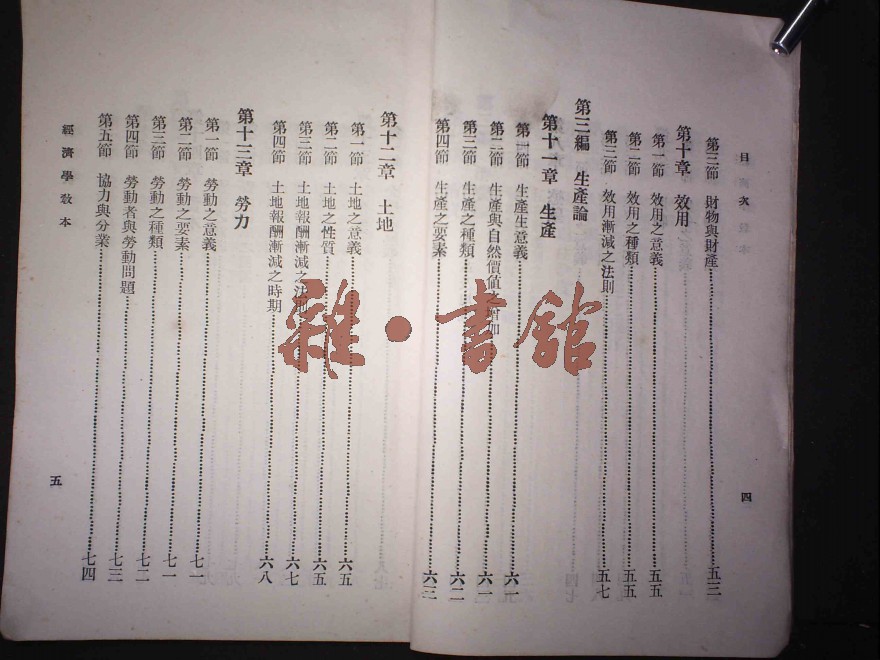 目次
第三節 財物與財產 五三
第十章 效用
第一節 效用之意義 五五
第二節 效用之種類 五五
第三節 效用漸減之法則 五七
第三編 生產論
第十一章 生產
第一節 生產生意義 六一
第二節 生產與自然價値之增加 六一
第三節 生產之種類 六二
第四節 生產之要素 六三
四
第十二章 土地
第一節 土地之意義 六五
第二節 土地之性質 六五
第三節 土地報酬漸減之法則 六七
第四節 土地報酬漸減之時期 六八
第十三章 勞力
第一節 勞動之意義 七一
第二節 勞動之要素 七一
第三節 勞動之種類 七二
第四節 勞動者與勞動問題 七三
第五節 協力與分業 七四
經濟學敎本
五
雜·書館